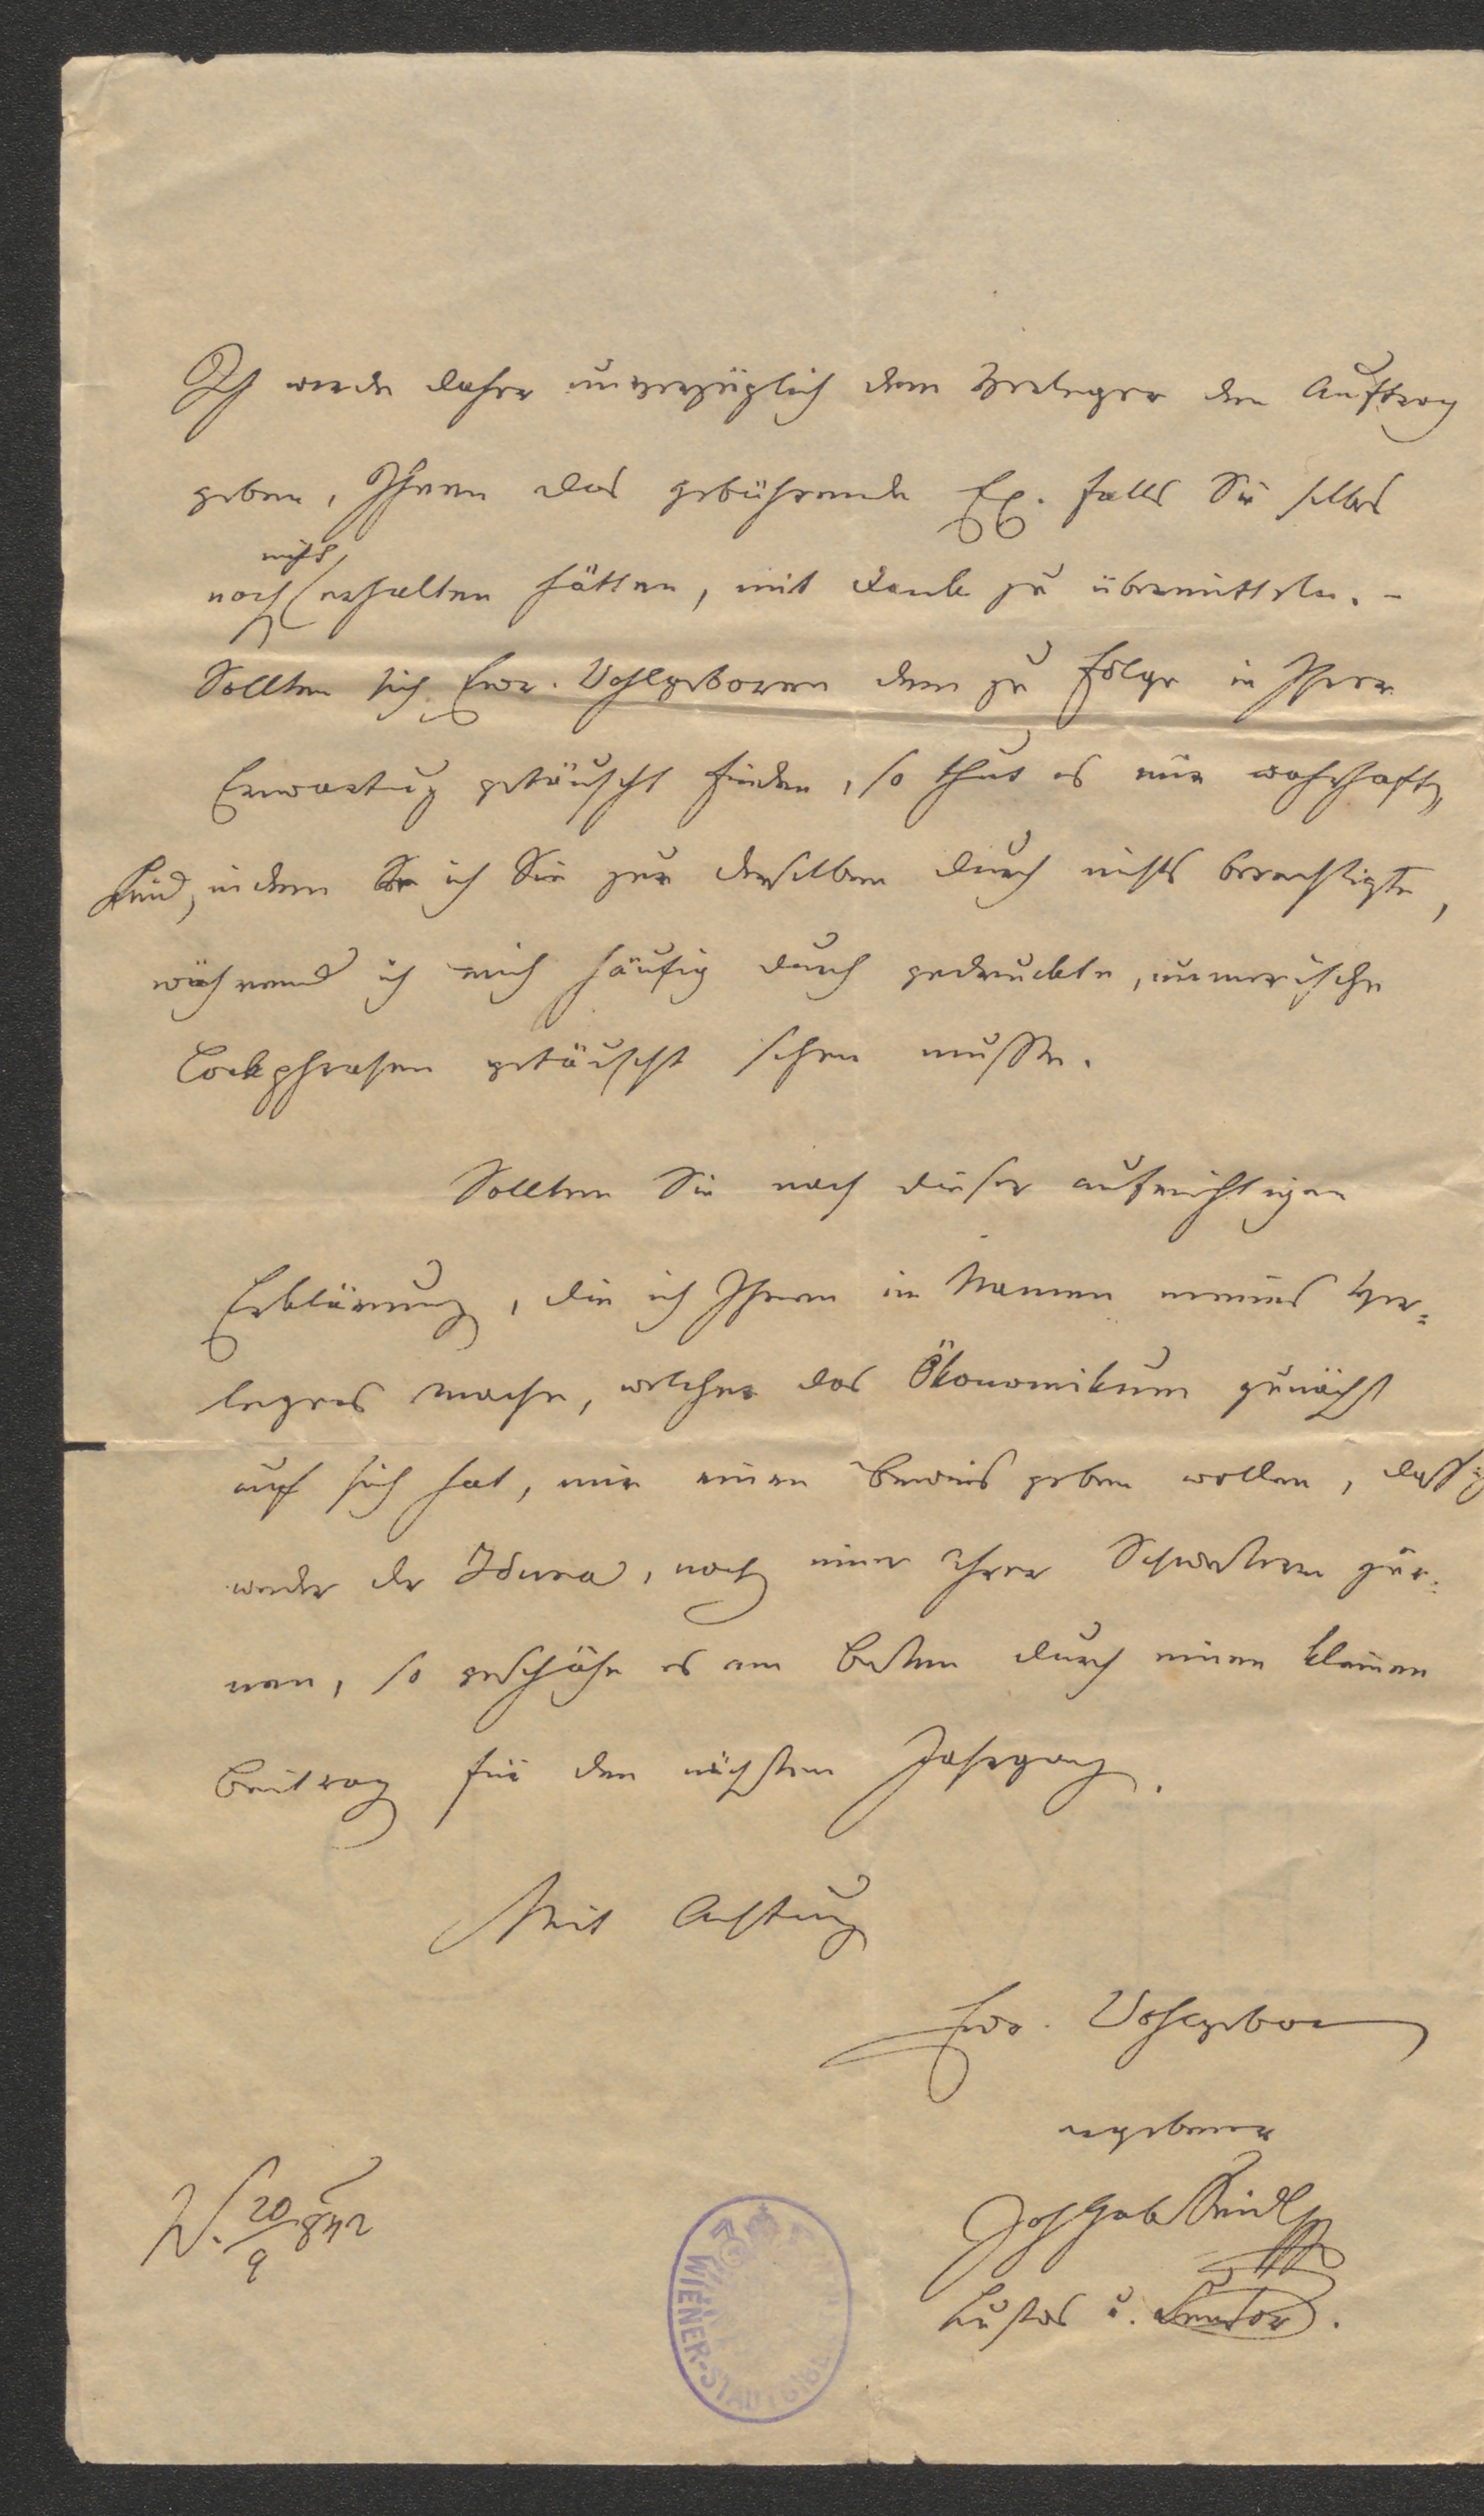 Ich werde daher unverzüglich dem Verleger den Auftrag
geben, Ihnen das gebührende Ex. falls Sie selbes
nicht
noch erhalten hätten, mit Dank zu übermitteln. –
Sollten sich Eur. Wohlgeboren dem zu Folge in Ihrer
Erwartung getäuscht finden, so thut es mir wahrhaft
Leid, indem ich Sie zur derselben durch nichts berechtigte,
während ich mich häufig durch gedruckte, numerische
Lockphrasen getäuscht sehen mußte.
Sollten Sie nach dieser aufrichtigen
Erklärung, die ich Ihnen im Namen meines Ver=
legers mache, welcher das Ökonomikum zunächst
auf sich hat, mir einen Beweis geben wollen, daß Sie
weder der Iduna, noch einer ihrer Schwestern zür=
nen, so geschähe es am Besten durch einen kleinen
Beitrag für den nächsten Jahrgang.
Mit Achtung
Eur. Wohlgebor
ergebener
Joh Gab Seidl
Custos u. Censor.
W. 20/9 842
WIENER-STADTBIBL